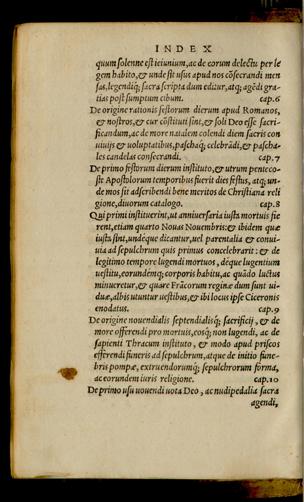 INDEX
quum solenne est ieiunium, ac de eorum delectu per le
gem habito, & unde sit usus apud nos cõsecrandi men
sas, legendiq; sacra scripta dum editur, atq; agẽdi gra-
tias post sumptum cibum. cap.6
De origine rationis festorum dierum apud Romanos,
& nostros, & cur cõstituti sint, & soli Deo esse sacri-
ficandum, ac de more natalem colendi diem sacris con
uiuijs & uoluptatibus, paschaq; celebrãdi, & pascha-
les candelas consecrandi. cap.7
De primo festorum dierum instituto, & utrum penteco-
ste Apostolorum temporibus fuerit dies festus, atq; un-
de mos sit adscribendi bene meritos de Christiana reli
gione, diuorum catalogo. cap.8
Qui primi instituerint, ut anniuersaria iusta mortuis fie
rent, etiam quarto Nonas Nouembris: & ibidem quæ
iusta sint, undéque dicantur, uel parentalia & conui-
uia ad sepulchrum quis primus concelebrarit: & de
legitimo tempore lugendi mortuos, déque lugentium
uestitu, eorundémq; corporis habitu, ac quãdo luctus
minueretur, & quare Frãcorum reginæ dum sunt ui-
duæ, albis utuntur uestibus, & ibi locus ipse Ciceronis
enodatus. cap.9
De origine nouendialis septendialisq; sacrificij, & de
more offerendi pro mortuis, eosq; non lugendi, ac de
sapienti Thracum instituto, & modo apud priscos
efferendi funeris ad sepulchrum, atque de initio fune-
bris pompæ, extruendorumq; sepulchrorum forma,
ac eorundem iuris religione. cap.10
De primo usu uouendi uota Deo, ac nudipedalia sacra
agendi,